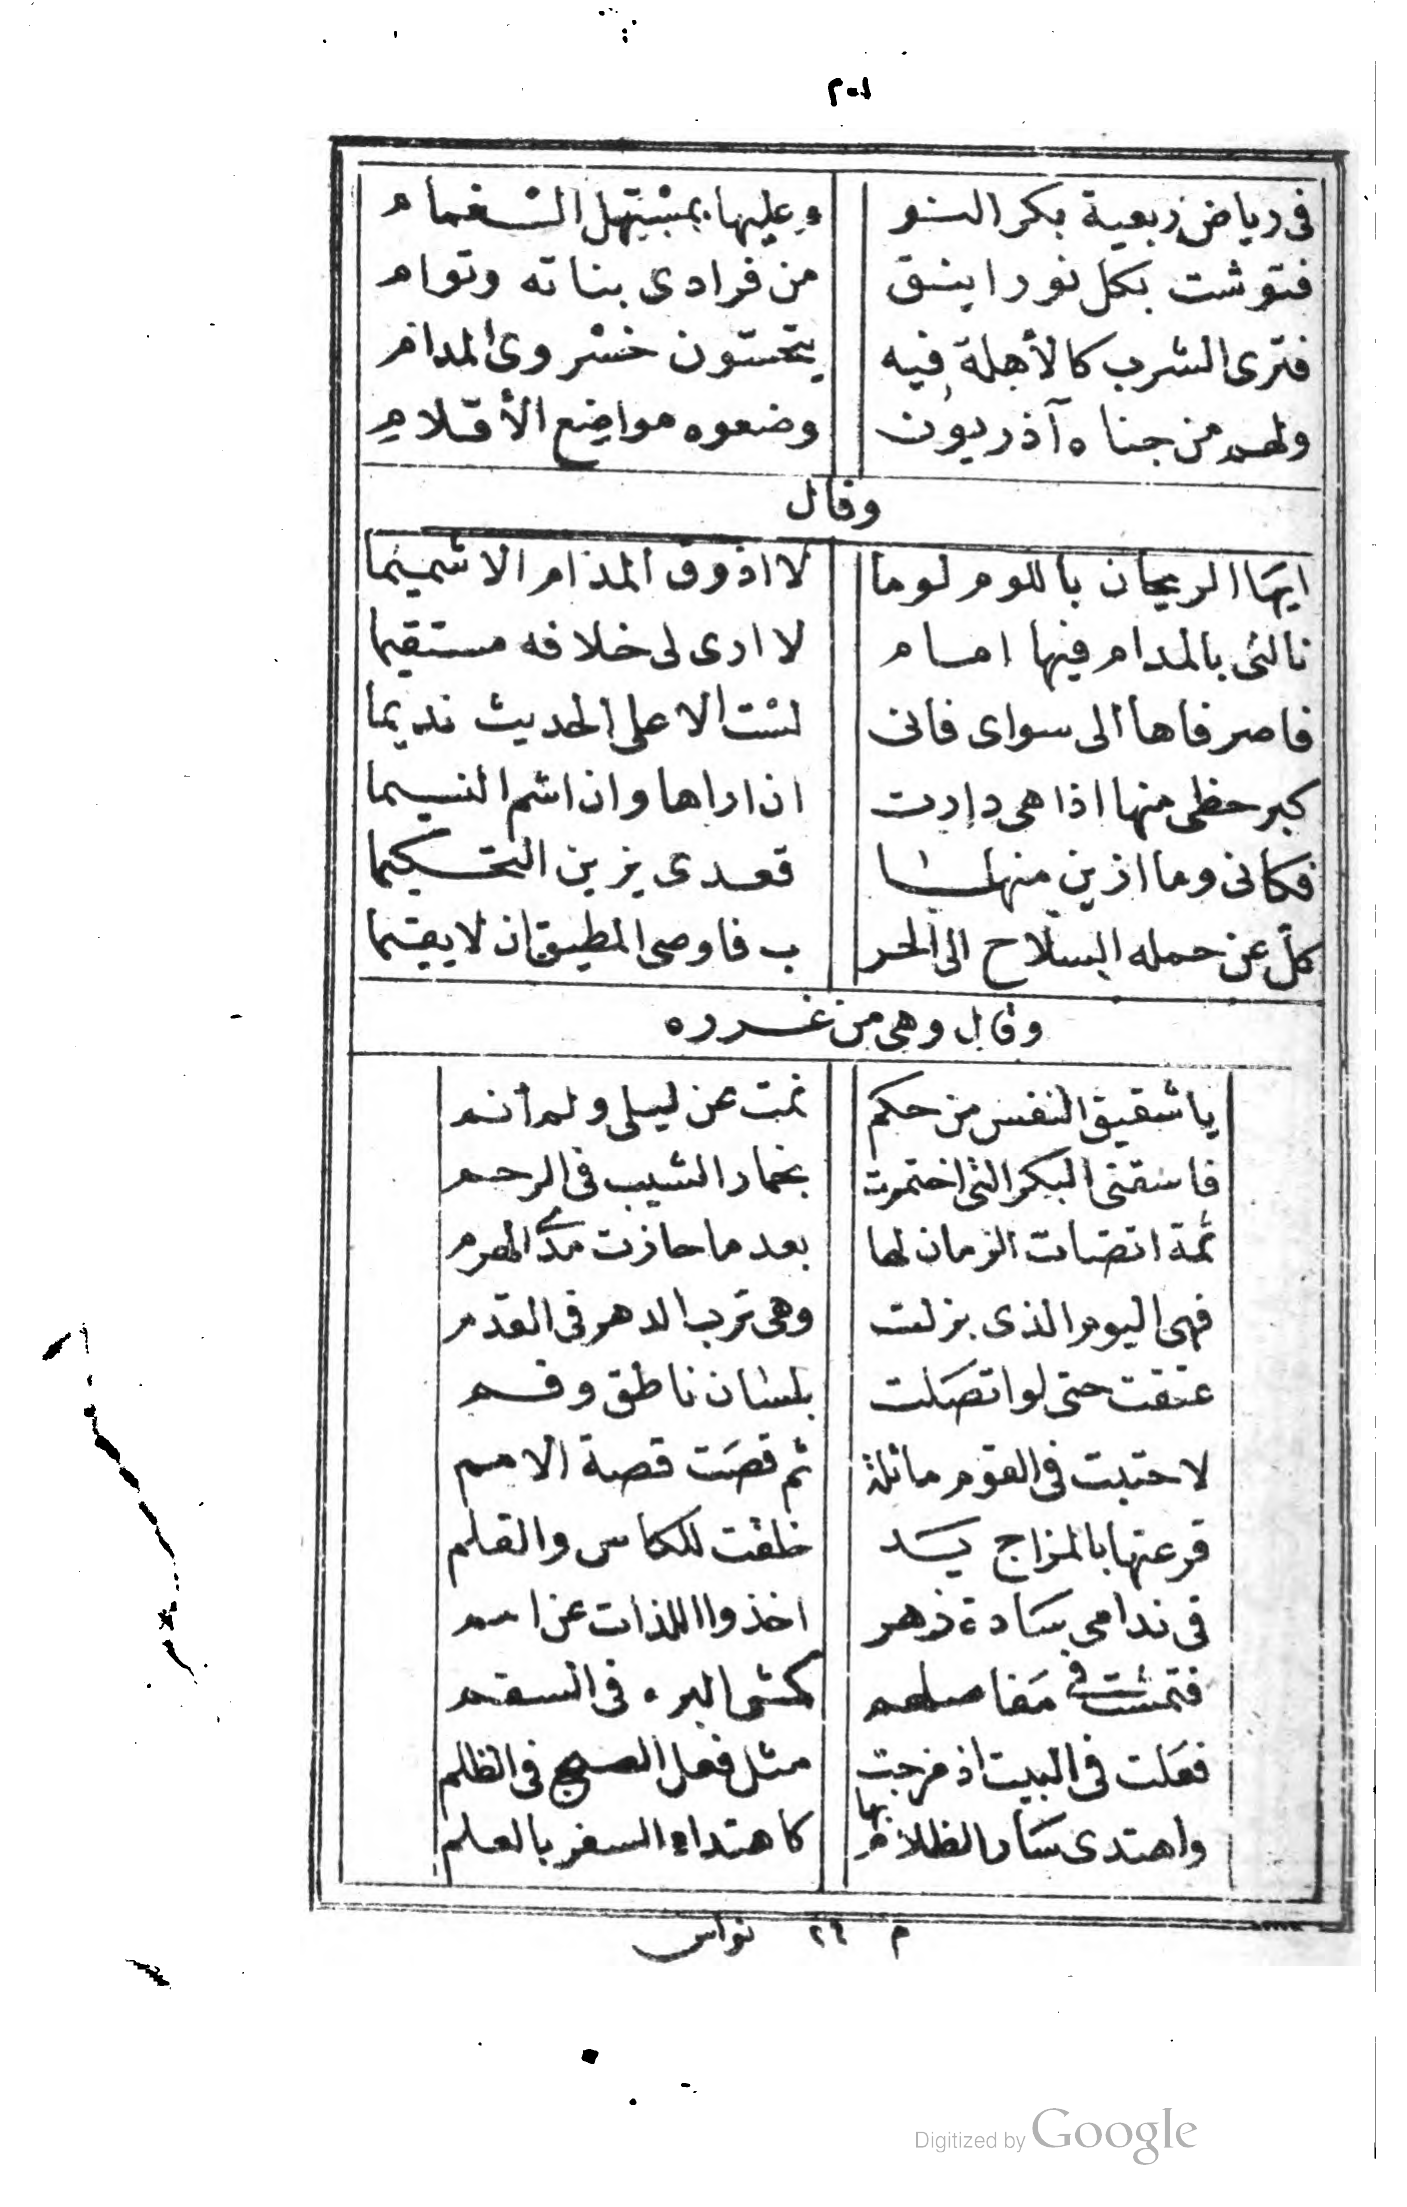 ٢٠١
فى رياض ربعية بكر النو وعليها بمستهل الغمام
فتوشت بكل نور انيق من فرادى بناته وتوام
فترى الشرب كالأهلة فيه يتحسون خسروى المدام
ولهم من جناه آذريون وضعوه مواضع الأقلام
وقال
ايها الريحان باللوم لوما لا اذوق المدام الا شميما
نالنى بالمدام فيها امام لا ارى لى خلافه مستقيما
فاصرفاها الى سواى فانى لست الا على الحديث نديما
كبر حظى منها اذا هى دارت ان اراها وان اشم النسيما
فكانى وما ازين منها قعدى يزين التحكيما
كل عن حمله السلاح الى الحر ب فاوصى المطيق ان لا يقيما
وقال وهى من غرره
يا شقيق النفس من حكم نمت عن ليلى ولم أنم
فاسقنى البكر التى اختمرت بخمار الشيب فى الرحم
ثمة انصات الزمان لها بعد ما حازت مدى الهرم
فهى اليوم الذى بزلت وهى ترب الدهر فى القدم
عتقت حتى لو اتصلت بلسان ناطق وفم
لاحتبت فى القوم ماثلة ثم قصت قصة الامم
قرعتها بالمزاج يد خلقت للكاس والقلم
فى ندامى سادة زهر اخذوا اللذات عن امم
فتمشت فى مفاصلهم كمشى البرء فى السقم
فعلت فى البيت اذ مزجت مثل فعل الصبح فى الظلم
واهتدى سارى الظلام بها كاهتداء السفر بالعلم
م ٢٦ نواس
Digitized by Google